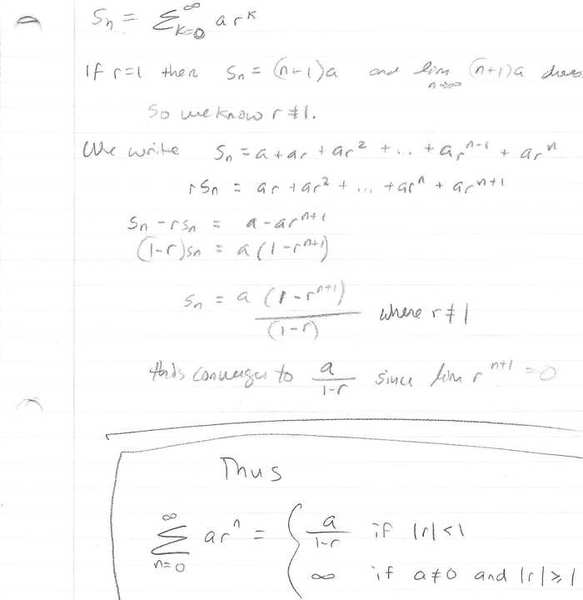 Sn = Σ_{k=0}^{∞} a r^k
If r=1 then Sn = (n+1)a and lim_{n→∞} (n+1)a
So we know r ≠ 1.
We write Sn = a + ar + ar^2 + ... + ar^{n-1} + ar^n
rSn = ar + ar^2 + ... + ar^n + ar^{n+1}
Sn - rSn = a - ar^{n+1}
(1-r)Sn = a(1-r^{n+1})
Sn = a (1-r^{n+1}) / (1-r) where r ≠ 1
this converges to a/(1-r) since lim r^{n+1} = 0
Thus
Σ_{n=0}^{∞} ar^n = { a/(1-r) if |r|<1
∞ if a≠0 and |r|≥1